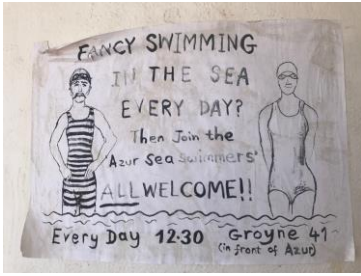 FANCY SWIMMING
IN THE SEA
EVERY DAY?
Then Join the
'Azur Sea Swimmers'
ALL WELCOME!!
Every Day 12.30 Groyne 41
(in front of Azur)